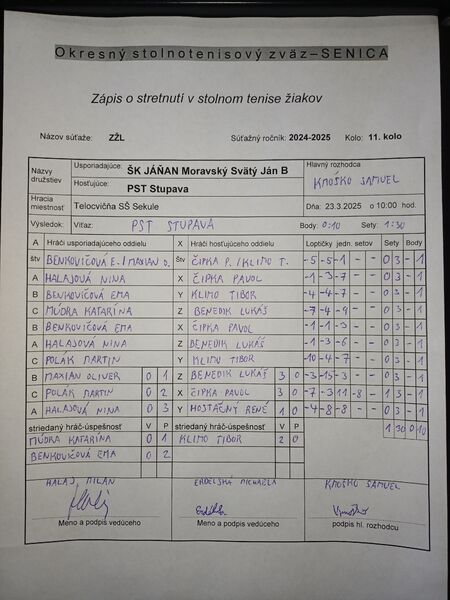 Okresný stolnotenisový zväz–SENICA
Zápis o stretnutí v stolnom tenise žiakov
Názov súťaže: ZŽL Súťažný ročník: 2024-2025 Kolo: 11. kolo
Názvy družstiev Usporiadajúce: ŠK JÁŇAN Moravský Svätý Ján B Hlavný rozhodca
Hosťujúce: PST Stupava KMOŠKO SAMUEL
Hracia miestnosť Telocvičňa SŠ Sekule Dňa: 23.3.2025 o 10:00 hod.
Výsledok: Víťaz: PST STUPAVA Body: 0:10 Sety: 1:30
A Hráči usporiadajúceho oddielu X Hráči hosťujúceho oddielu Loptičky jedn. setov Sety Body
štv BENKOVIČOVÁ E./MAXIAN O. štv ČIPKA P./KLIMO T. -5 -5 -1 - - 0 3 - 1
A HALAJOVÁ NINA X ČIPKA PAVOL -1 -3 -7 - - 0 3 - 1
B BENKOVIČOVÁ EMA Y KLIMO TIBOR -4 -4 -7 - - 0 3 - 1
C MÚDRA KATARÍNA Z BENEDIK LUKÁŠ -7 -4 -9 - - 0 3 - 1
B BENKOVIČOVÁ EMA X ČIPKA PAVOL -1 -1 -3 - - 0 3 - 1
A HALAJOVÁ NINA Z BENEDIK LUKÁŠ -1 -3 -6 - - 0 3 - 1
C POLÁK MARTIN Y KLIMO TIBOR -10 -4 -7 - - 0 3 - 1
B MAXIAN OLIVER 0 1 Z BENEDIK LUKÁŠ 3 0 -3 -15 -3 - - 0 3 - 1
C POLÁK MARTIN 0 2 X ČIPKA PAVOL 3 0 -7 -3 11 -8 - 1 3 - 1
A HALAJOVÁ NINA 0 3 Y HOSTAČNÝ RENÉ 1 0 -4 -8 -8 - - 0 3 - 1
striedaný hráč-úspešnosť V P striedaný hráč-úspešnosť V P 1 30 0 10
MÚDRA KATARÍNA 0 1 KLIMO TIBOR 2 0
BENKOVIČOVÁ EMA 0 2
HALAJ, MILAN ERDELSKÁ MICHAELA KMOŠKO SAMUEL
Meno a podpis vedúceho Meno a podpis vedúceho podpis hl. rozhodcu